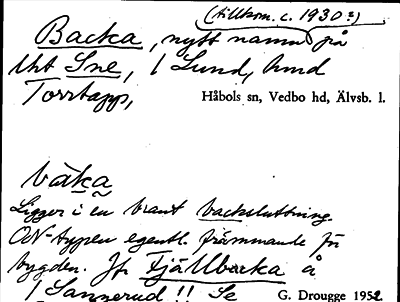 (tillkom. c. 1930?)
Backa, nytt namn på
lht Sne, / Lund, hmd
Torrtapp, Håbols sn, Vedbo hd, Älvsb. l.
bàka
Ligger i en brant backsluttning.
OdN-typen egentl. främmande för
bygden. Jfr Fjällbacka å
/ Sannerud !! Se G. Drougge 1952.